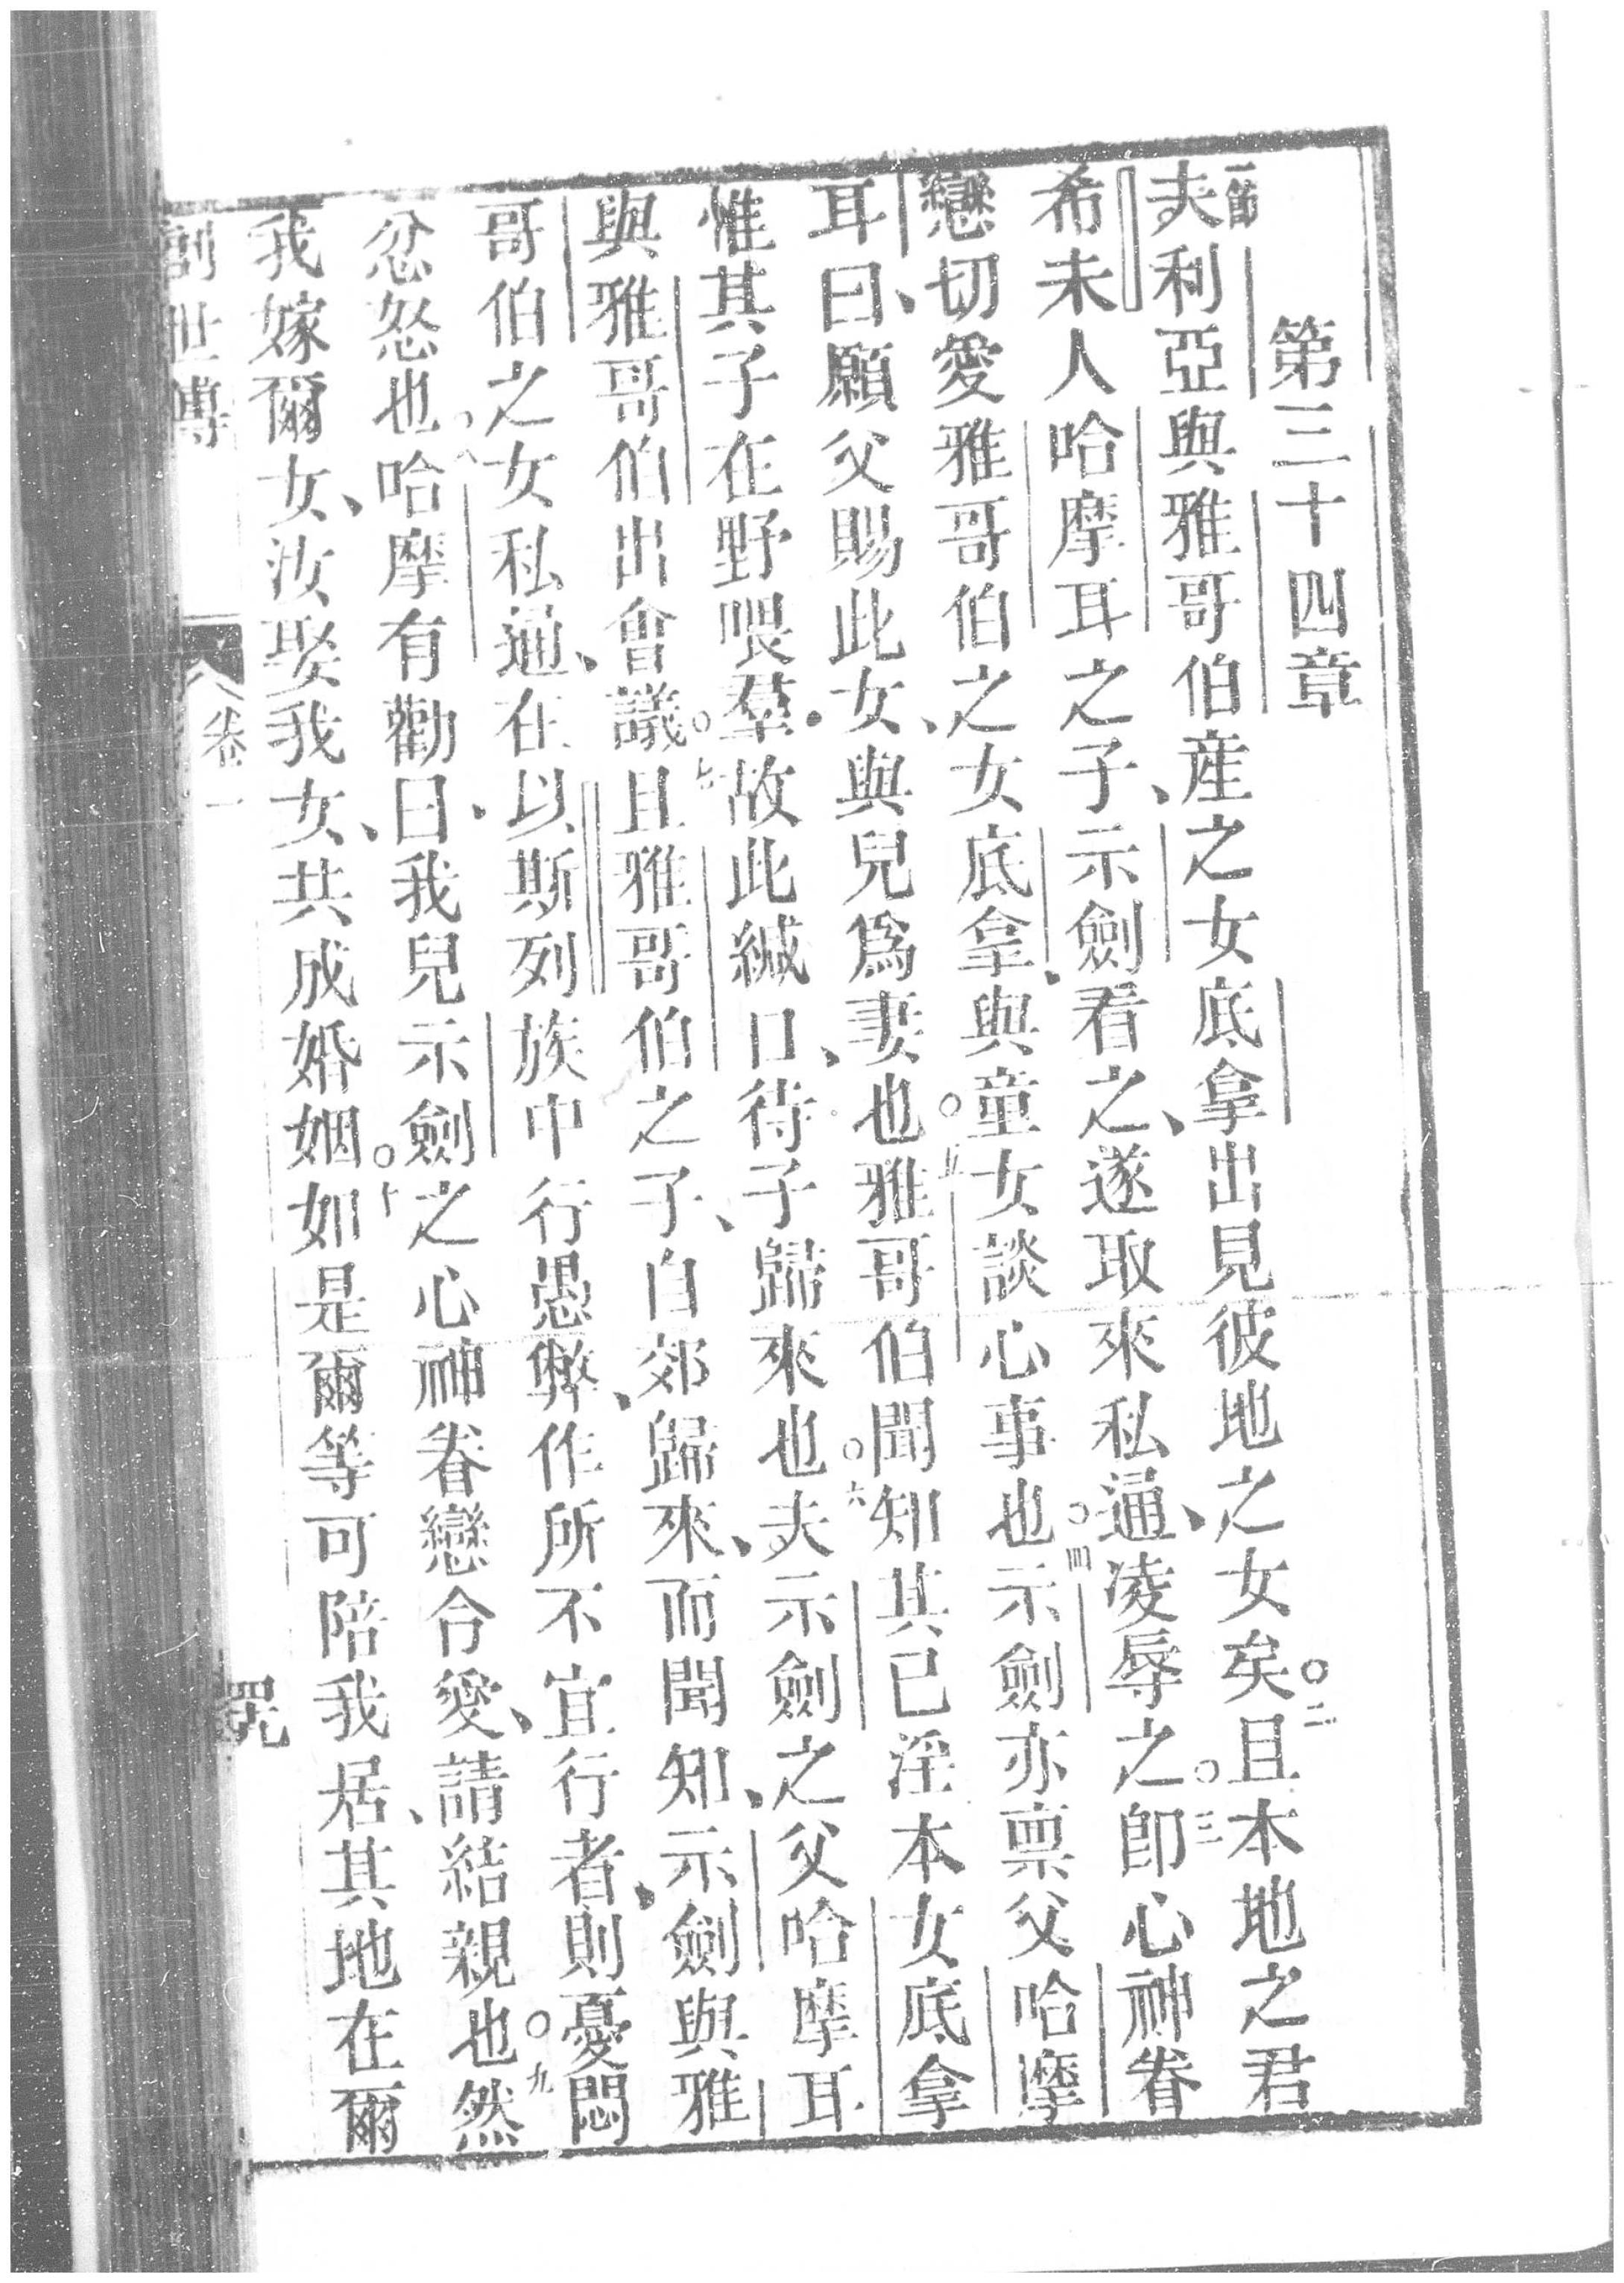 第三十四章
一節夫利亞與雅哥伯産之女底拿出見彼地之女矣○二且本地之君
希未人哈摩耳之子、示劍看之、遂取來私通、凌辱之○三卽心神眷
戀切愛雅哥伯之女底拿、與童女談心事也○四示劍亦禀父哈摩
耳曰、願父賜此女、與兒爲妻也○五雅哥伯聞知其已淫本女底拿
惟其子在野喂羣、故此緘口、待子歸來也○六夫示劍之父哈摩耳
與雅哥伯出會議○七且雅哥伯之子、自郊歸來、而聞知、示劍與雅
哥伯之女私通、在以斯列族中行愚弊、作所不宜行者、則憂悶
忿怒也○八哈摩有勸曰、我兒示劍之心神眷戀合愛、請結親也○九然
我嫁爾女、汝娶我女、共成婚姻○十如是爾等可陪我居、其地在爾
創世傳 卷一 四九